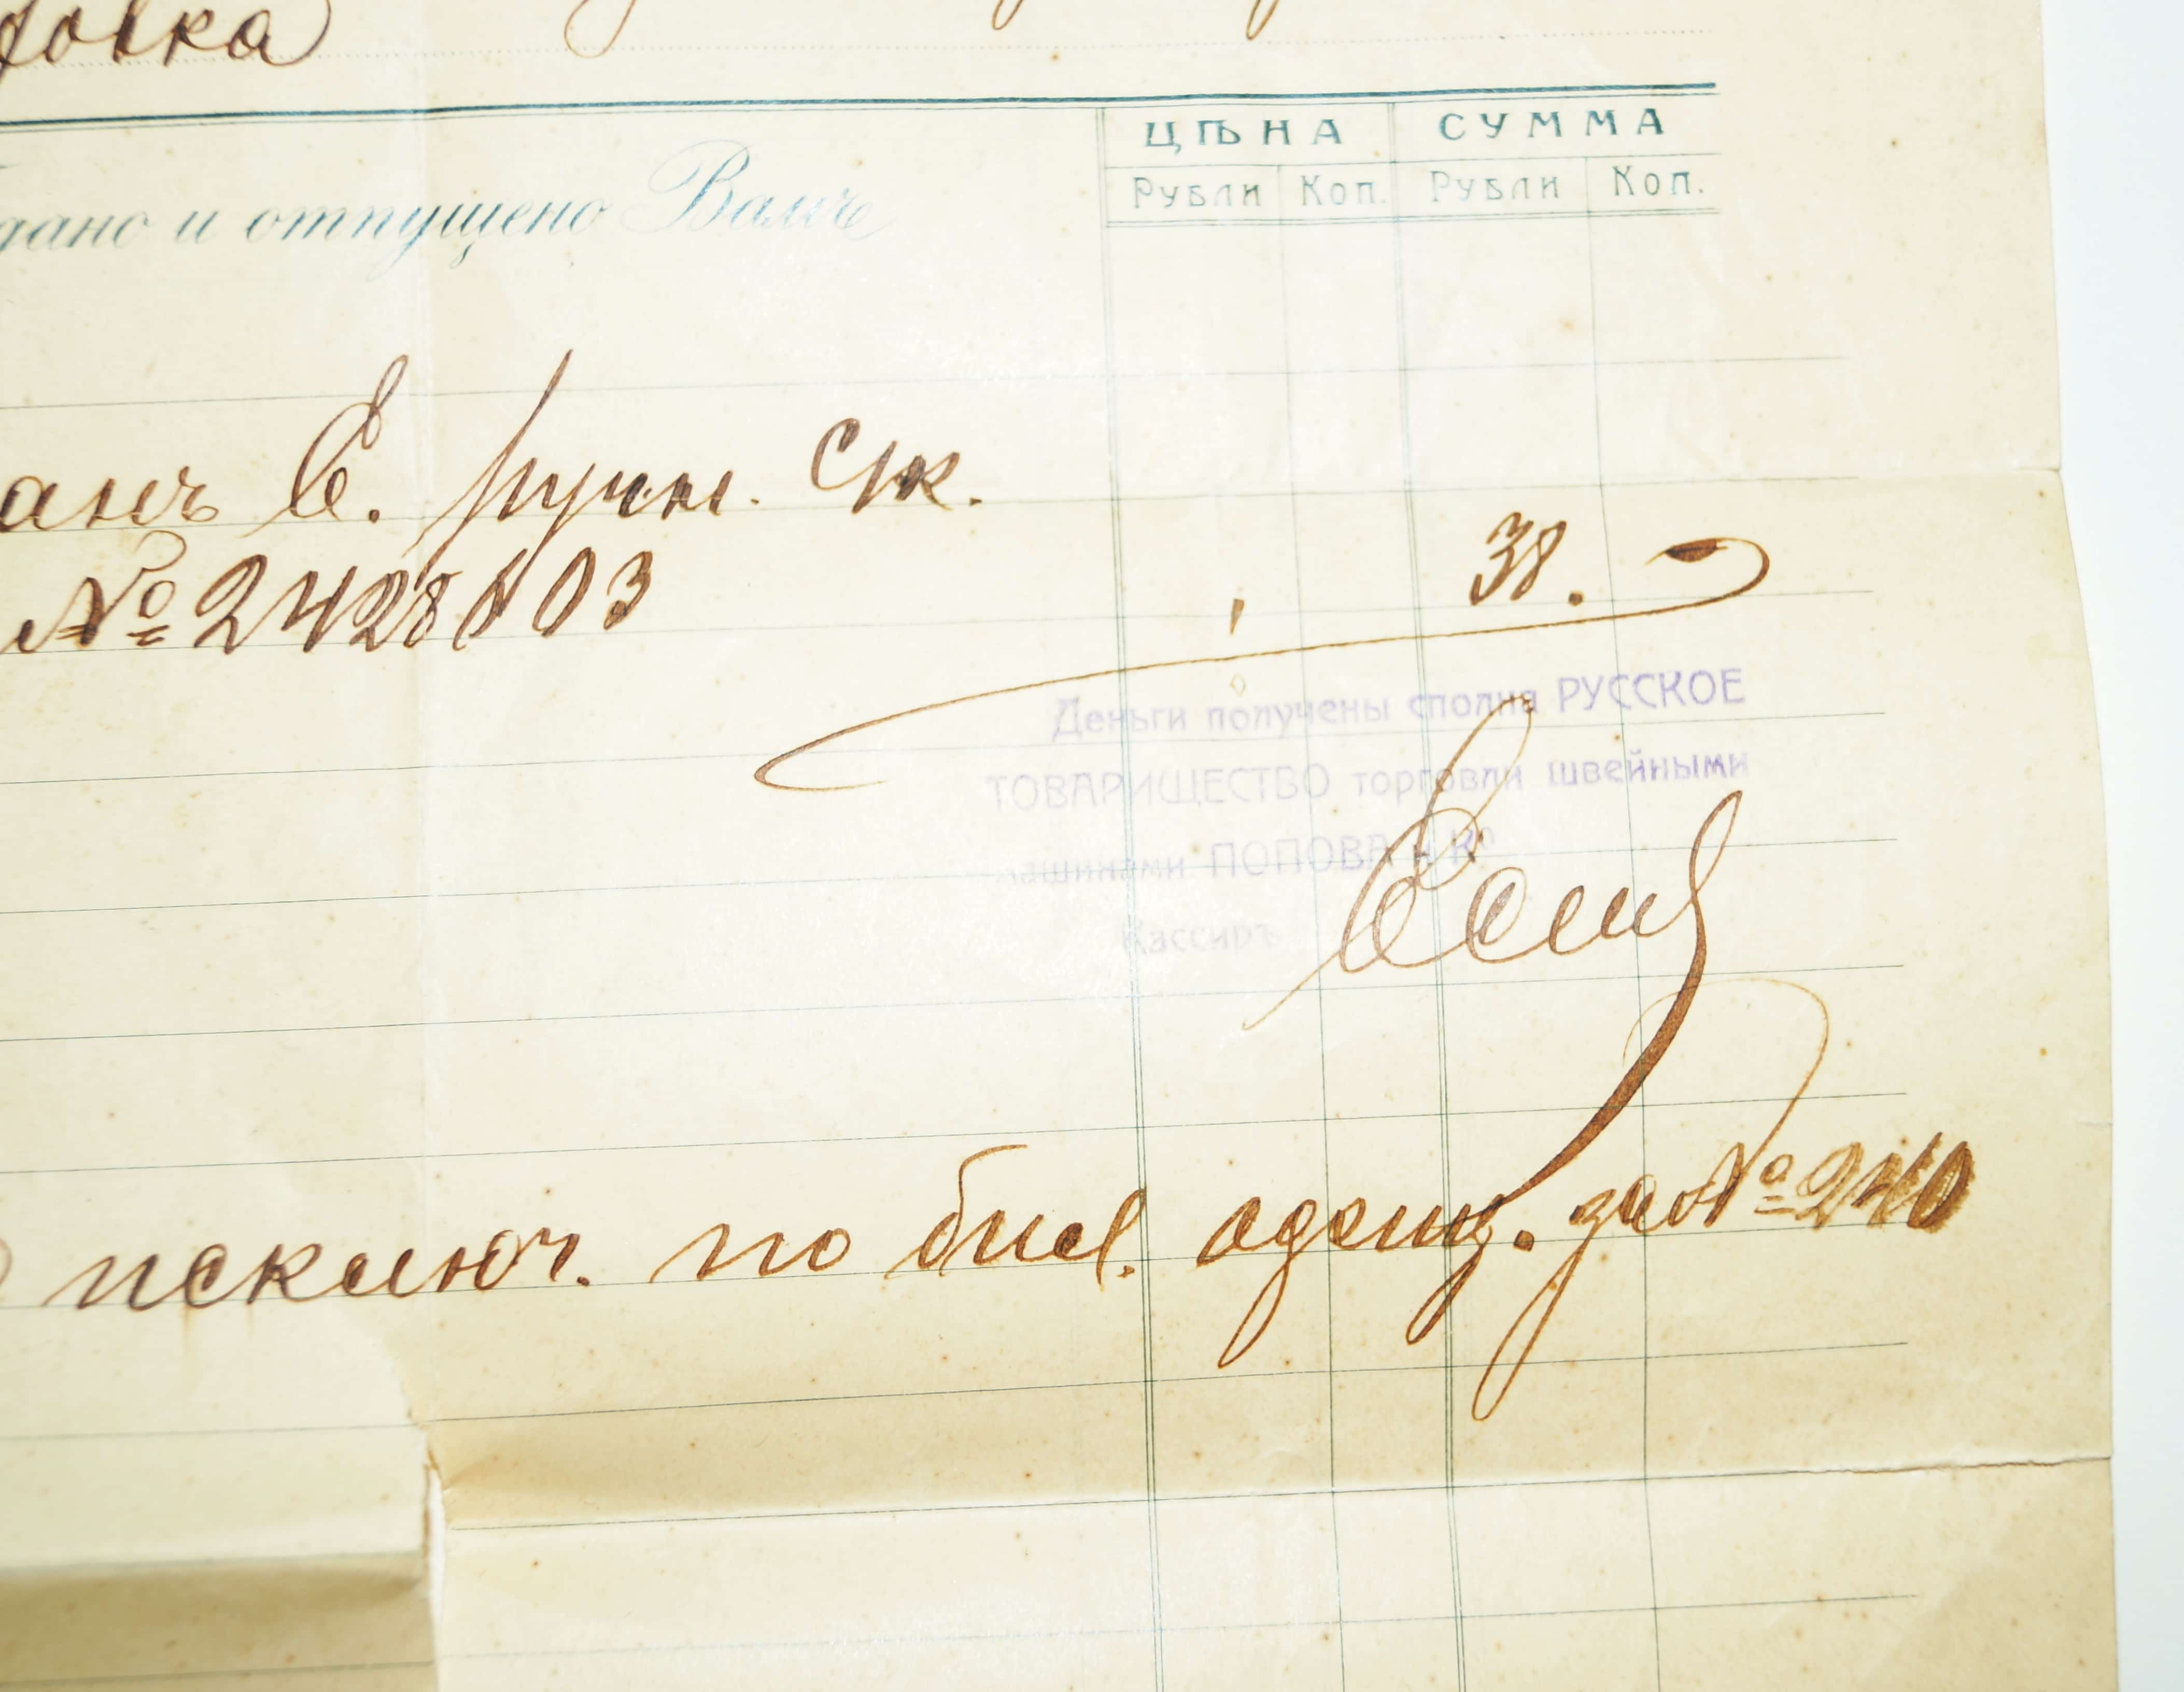 ЦѢНА СУММА
Рубли Коп. Рубли Коп.
дано и отпущено Вамъ
анъ В. ручн. ск.
№ 2428603
38. —
Деньги получены сполна РУССКОЕ
ТОВАРИЩЕСТВО торговли швейными
машинами ПОПОВА и Ко
Кассиръ
исключ. по
за № 240